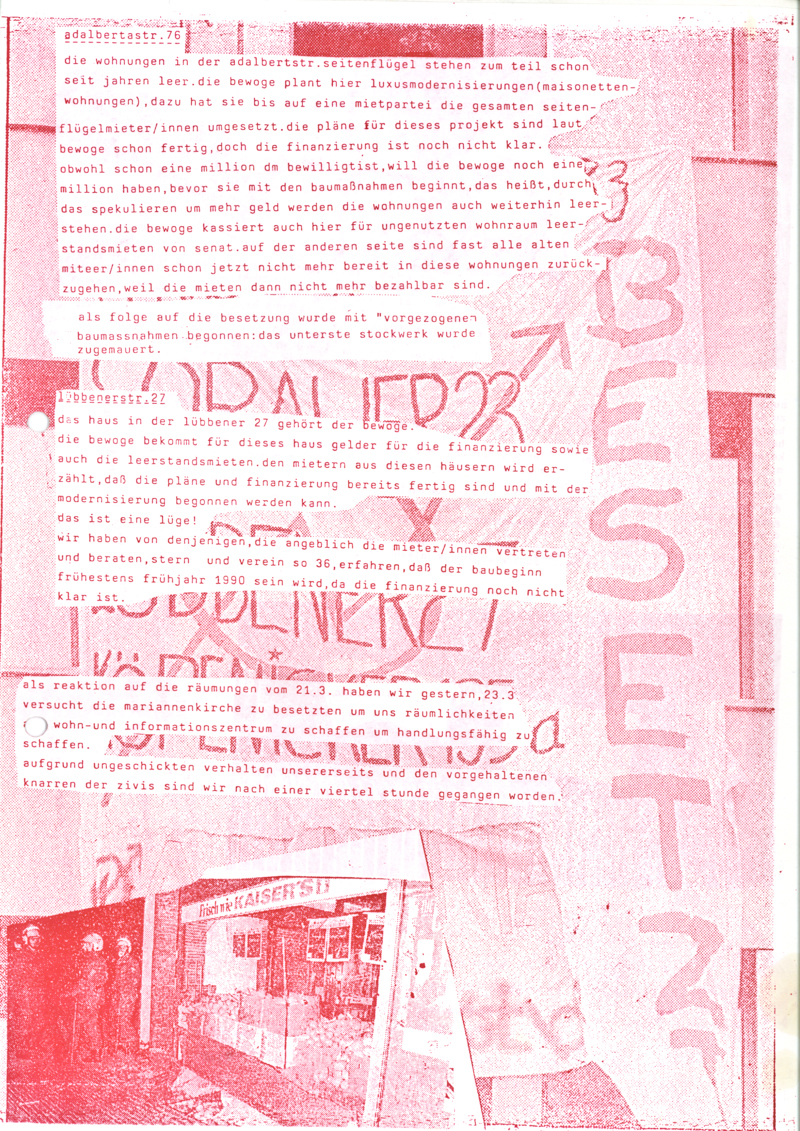 adalbertastr.76
die wohnungen in der adalbertstr.seitenflügel stehen zum teil schon
seit jahren leer.die bewoge plant hier luxusmodernisierungen(maisonetten-
wohnungen),dazu hat sie bis auf eine mietpartei die gesamten seiten-
flügelmieter/innen umgesetzt.die pläne für dieses projekt sind laut
bewoge schon fertig,doch die finanzierung ist noch nicht klar.
obwohl schon eine million dm bewilligtist,will die bewoge noch eine
million haben,bevor sie mit den baumaßnahmen beginnt,das heißt,durch
das spekulieren um mehr geld werden die wohnungen auch weiterhin leer-
stehen.die bewoge kassiert auch hier für ungenutzten wohnraum leer-
standsmieten von senat.auf der anderen seite sind fast alle alten
miteer/innen schon jetzt nicht mehr bereit in diese wohnungen zurück-
zugehen,weil die mieten dann nicht mehr bezahlbar sind.
als folge auf die besetzung wurde mit "vorgezogenen
baumassnahmen begonnen:das unterste stockwerk wurde
zugemauert.
lübbenerstr.27
das haus in der lübbener 27 gehört der bewoge.
die bewoge bekommt für dieses haus gelder für die finanzierung sowie
auch die leerstandsmieten.den mietern aus diesen häusern wird er-
zählt,daß die pläne und finanzierung bereits fertig sind und mit der
modernisierung begonnen werden kann.
das ist eine lüge!
wir haben von denjenigen,die angeblich die mieter/innen vertreten
und beraten,stern  und verein so 36,erfahren,daß der baubeginn
frühestens frühjahr 1990 sein wird,da die finanzierung noch nicht
klar ist.
als reaktion auf die räumungen vom 21.3. haben wir gestern,23.3
versucht die mariannenkirche zu besetzten um uns räumlichkeiten
wohn-und informationszentrum zu schaffen um handlungsfähig zu
schaffen.
aufgrund ungeschickten verhalten unsererseits und den vorgehaltenen
knarren der zivis sind wir nach einer viertel stunde gegangen worden.
BESETZT
LÜBBENER27
Frisch wie KAISER'S